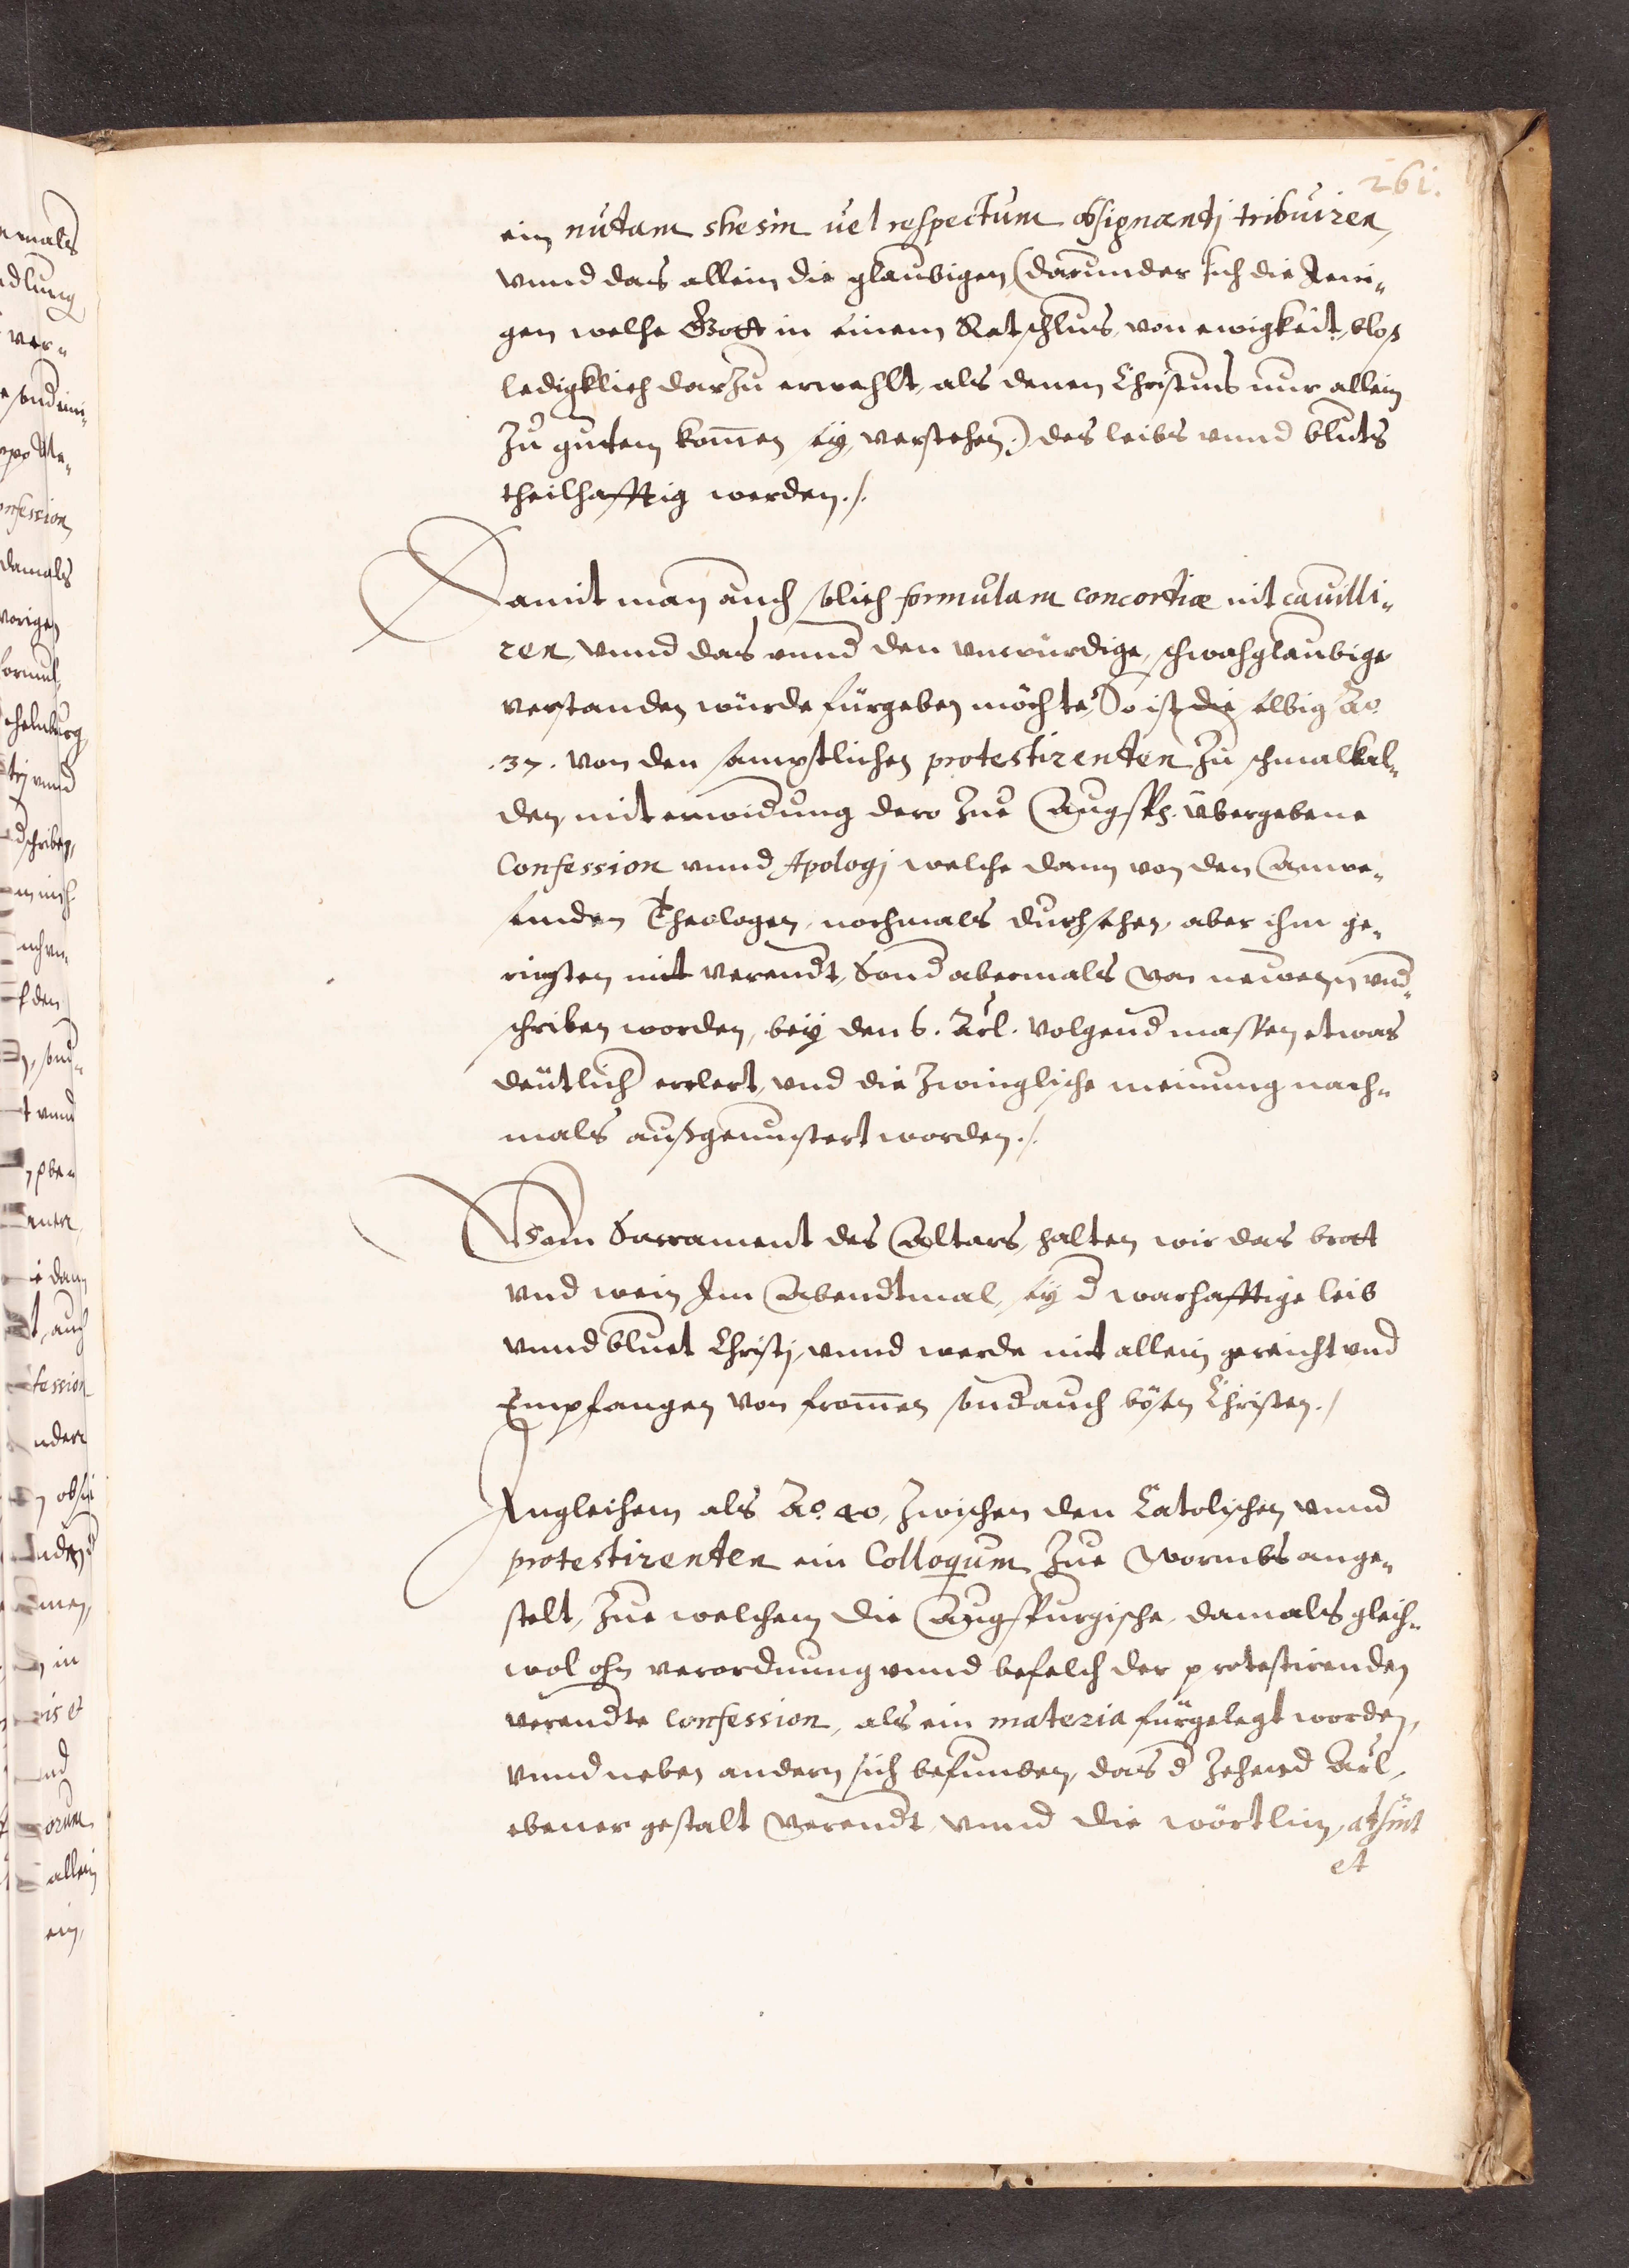 261.
ein nudam shesin uel respectum obsignandj tribuiren,
vnnd das allein die glaubigen (darunder sich die Jeni-
gen welche Gott in seinem Ratschluß, von ewigkeit, bloß
ledigklich darzu erwehlt, als denen Christus nur allein
zu guttem kom̅en sey, verstehen.) des leibs vnnd bluts
theilhafftig werden./.
Damit man auch solich formulam concordiæ nit cauilli-
ren, vnnd das vnnd den vnwürdige, schwachglaubige
verstanden würde fürgeben möchte, So ist die selbig Ao.
.37. von den samptlichen protestirenten zu schmalkal-
den, mit erwidung dero zue Augspg. übergebene
Confession vnnd Apologj welche dann von den Anwe-
senden Theologen, nochmals durchsehen, aber ihm ge-
ringsten nitt verendt, Sond abermals von newem vnd-
schriben worden, bey den 6. Arl. volgend massen etwas
deütlich erclert, vnd die Zwinglische meinung nach-
mals außgemustert worden./.
Vom Sacrament des Altars, halten wir das brott
vnd wein Im Abendtmal, sey d warhafftige leib
vnnd bluet Christj, vnnd werde nit allein gereicht vnd
Empfangen von from̅en sond auch bösen Christen./
Ingleichem als Ao. 40, zwischen den Catolischen vnnd
protestirenten ein Colloqum zue Wormbs ange-
stelt, zue welchem die Augspurgische, damals gleich-
wol ohn verordnung vnnd befelch der protestirenden
verendte Confession, als ein materia fürgelegt worden,
vnnd neben andern sich befunden, das d zehend Arl,
ebener gestalt verendt, vnnd die wörtlin, adsint
et